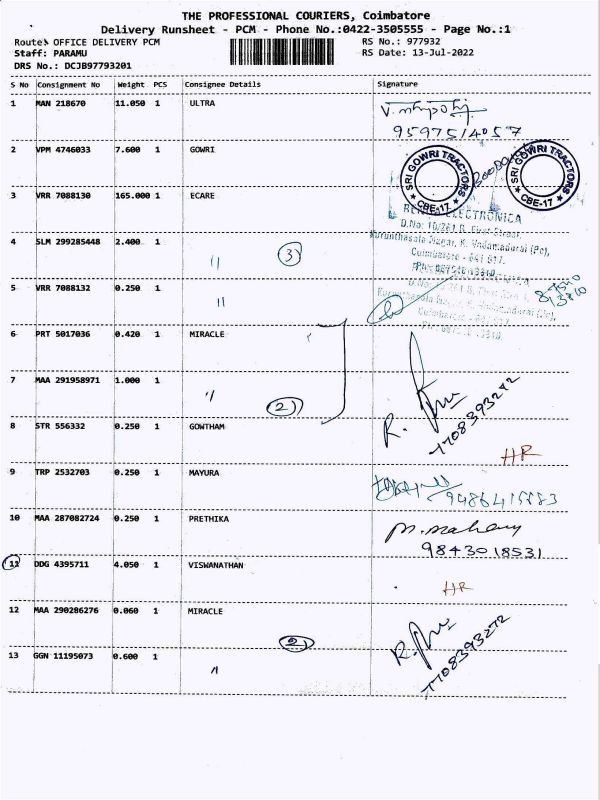 THE PROFESSIONAL COURIERS, Coimbatore
Delivery Runsheet - PCM - Phone No.:0422-3505555 - Page No.:1
Route: OFFICE DELIVERY PCM
RS No.: 977932
Staff: PARAMU
RS Date: 13-Jul-2022
DRS No.: DCJB97793201
S No Consignment No Weight PCS Consignee Details Signature
1 MAN 218670 11.050 1 ULTRA
9597514057
2 VPM 4746033 7.600 1 GOWRI
SRI GOWRI TRACTORS
CBE-17
SRI GOWRI TRACTORS
CBE-17
3 VRR 7088130 165.000 1 ECARE
ELECTRONICA
4 SLM 299285448 2.400 1
" 3
5 VRR 7088132 0.250 1
"
6 PRT 5017036 0.420 1 MIRACLE
7 MAA 291958971 1.000 1
" 2
R.
7708393272
8 STR 556332 0.250 1 GOWTHAM
HR
9 TRP 2532703 0.250 1 MAYURA
10 MAA 287082724 0.250 1 PRETHIKA
9843018531
11 DDG 4395711 4.050 1 VISWANATHAN
HR
12 MAA 290286276 0.060 1 MIRACLE
2
R.
7708393272
13 GGN 11195073 0.600 1
"